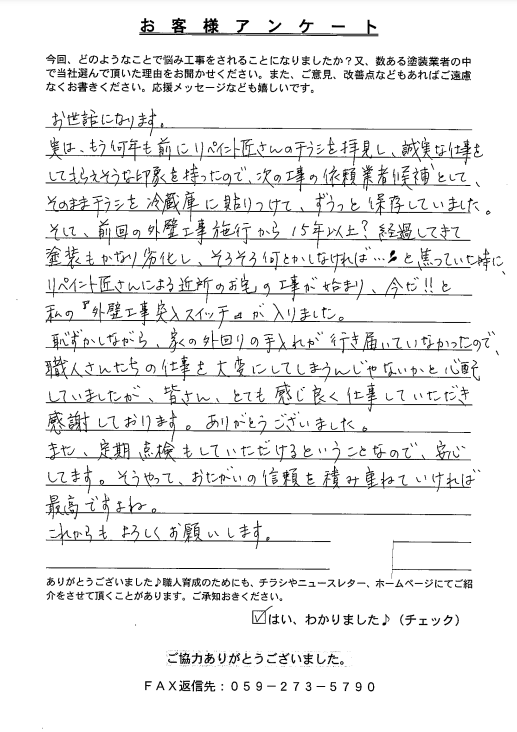 お客様アンケート
今回、どのようなことで悩み工事をされることになりましたか？又、数ある塗装業者の中
で当社選んで頂いた理由をお聞かせください。また、ご意見、改善点などもあればご遠慮
なくお書きください。応援メッセージなども嬉しいです。
お世話になります。
実は、もう何年も前にリペイント匠さんのチラシを拝見し、誠実な仕事を
してもらえそうな印象を持ったので、次の工事の依頼業者候補として、
そのままチラシを冷蔵庫に貼りつけて、ずうっと保存していました。
そして、前回の外壁工事施行から15年以上？経過してきて
塗装もかなり劣化し、そろそろ何とかしなければ…！と焦っていた時に、
リペイント匠さんによる近所のお宅の工事が始まり、今だ!!と
私の『外壁工事突入スイッチ』が入りました。
恥ずかしながら、家の外回りの手入れが行き届いていなかったので、
職人さんたちの仕事を大変にしてしまうんじゃないかと心配
していましたが、皆さん、とても感じ良く仕事していただき
感謝しております。ありがとうございました。
また、定期点検もしていただけるということなので、安心
してます。そうやって、おたがいの信頼を積み重ねていければ
最高ですよね。
これからもよろしくお願いします。
ありがとうございました♪職人育成のためにも、チラシやニュースレター、ホームページにてご紹
介をさせて頂くことがあります。ご承知おきください。
☑はい、わかりました♪（チェック）
ご協力ありがとうございました。
ＦＡＸ返信先：０５９－２７３－５７９０